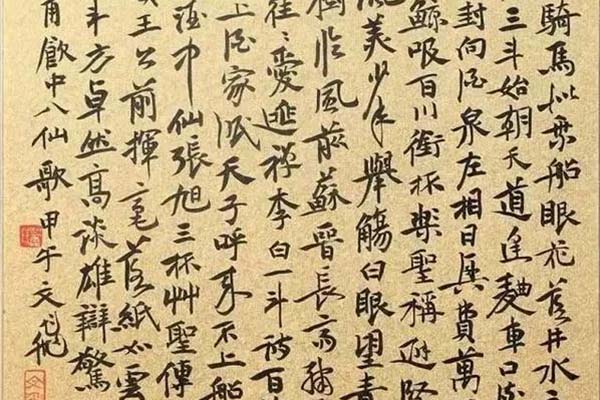 騎馬似乘船眼花落井水
三斗始朝天道逢麴車口
封向酒泉左相日興費萬
鯨吸百川銜杯樂聖稱避賢
美少年舉觴白眼望青
樹臨風前蘇晉長齋繡
往〻愛逃禪李白一斗詩百
上酒家眠天子呼來不上船
酒中仙張旭三杯艸聖傳
王公前揮毫落紙如雲
斗方卓然高談雄辯驚
甫飲中八仙歌甲午文